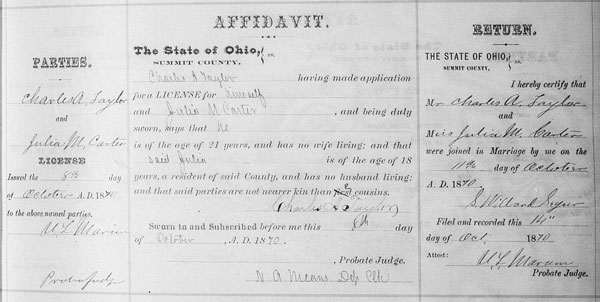 PARTIES.
Charles A. Taylor
and
Julia M. Carter
LICENSE
Issued the 8th day
of October A. D. 1870
to the above named parties.
Probate Judge
AFFIDAVIT.
The State of Ohio, ss.
SUMMIT COUNTY,
Charles A Taylor having made application
for a LICENSE for himself
and Julia M Carter, and being duly
sworn, says that he
is of the age of 21 years, and has no wife living; and that
said Julia is of the age of 18
years, a resident of said County, and has no husband living;
and that said parties are not nearer kin than 2nd cousins.
Charles A Taylor
Sworn in and Subscribed before me this 8th day
of October, A. D. 1870.
Probate Judge.
N A Means Dep Clk
RETURN.
THE STATE OF OHIO, ss.
SUMMIT COUNTY,
I hereby certify that
Mr Charles A. Taylor
and
Miss Julia M. Carter
were joined in Marriage by me on the
11th day of October
A. D. 1870.
S. Willard
Filed and recorded this 14"
day of Oct. 1870
Attest:
Probate Judge.